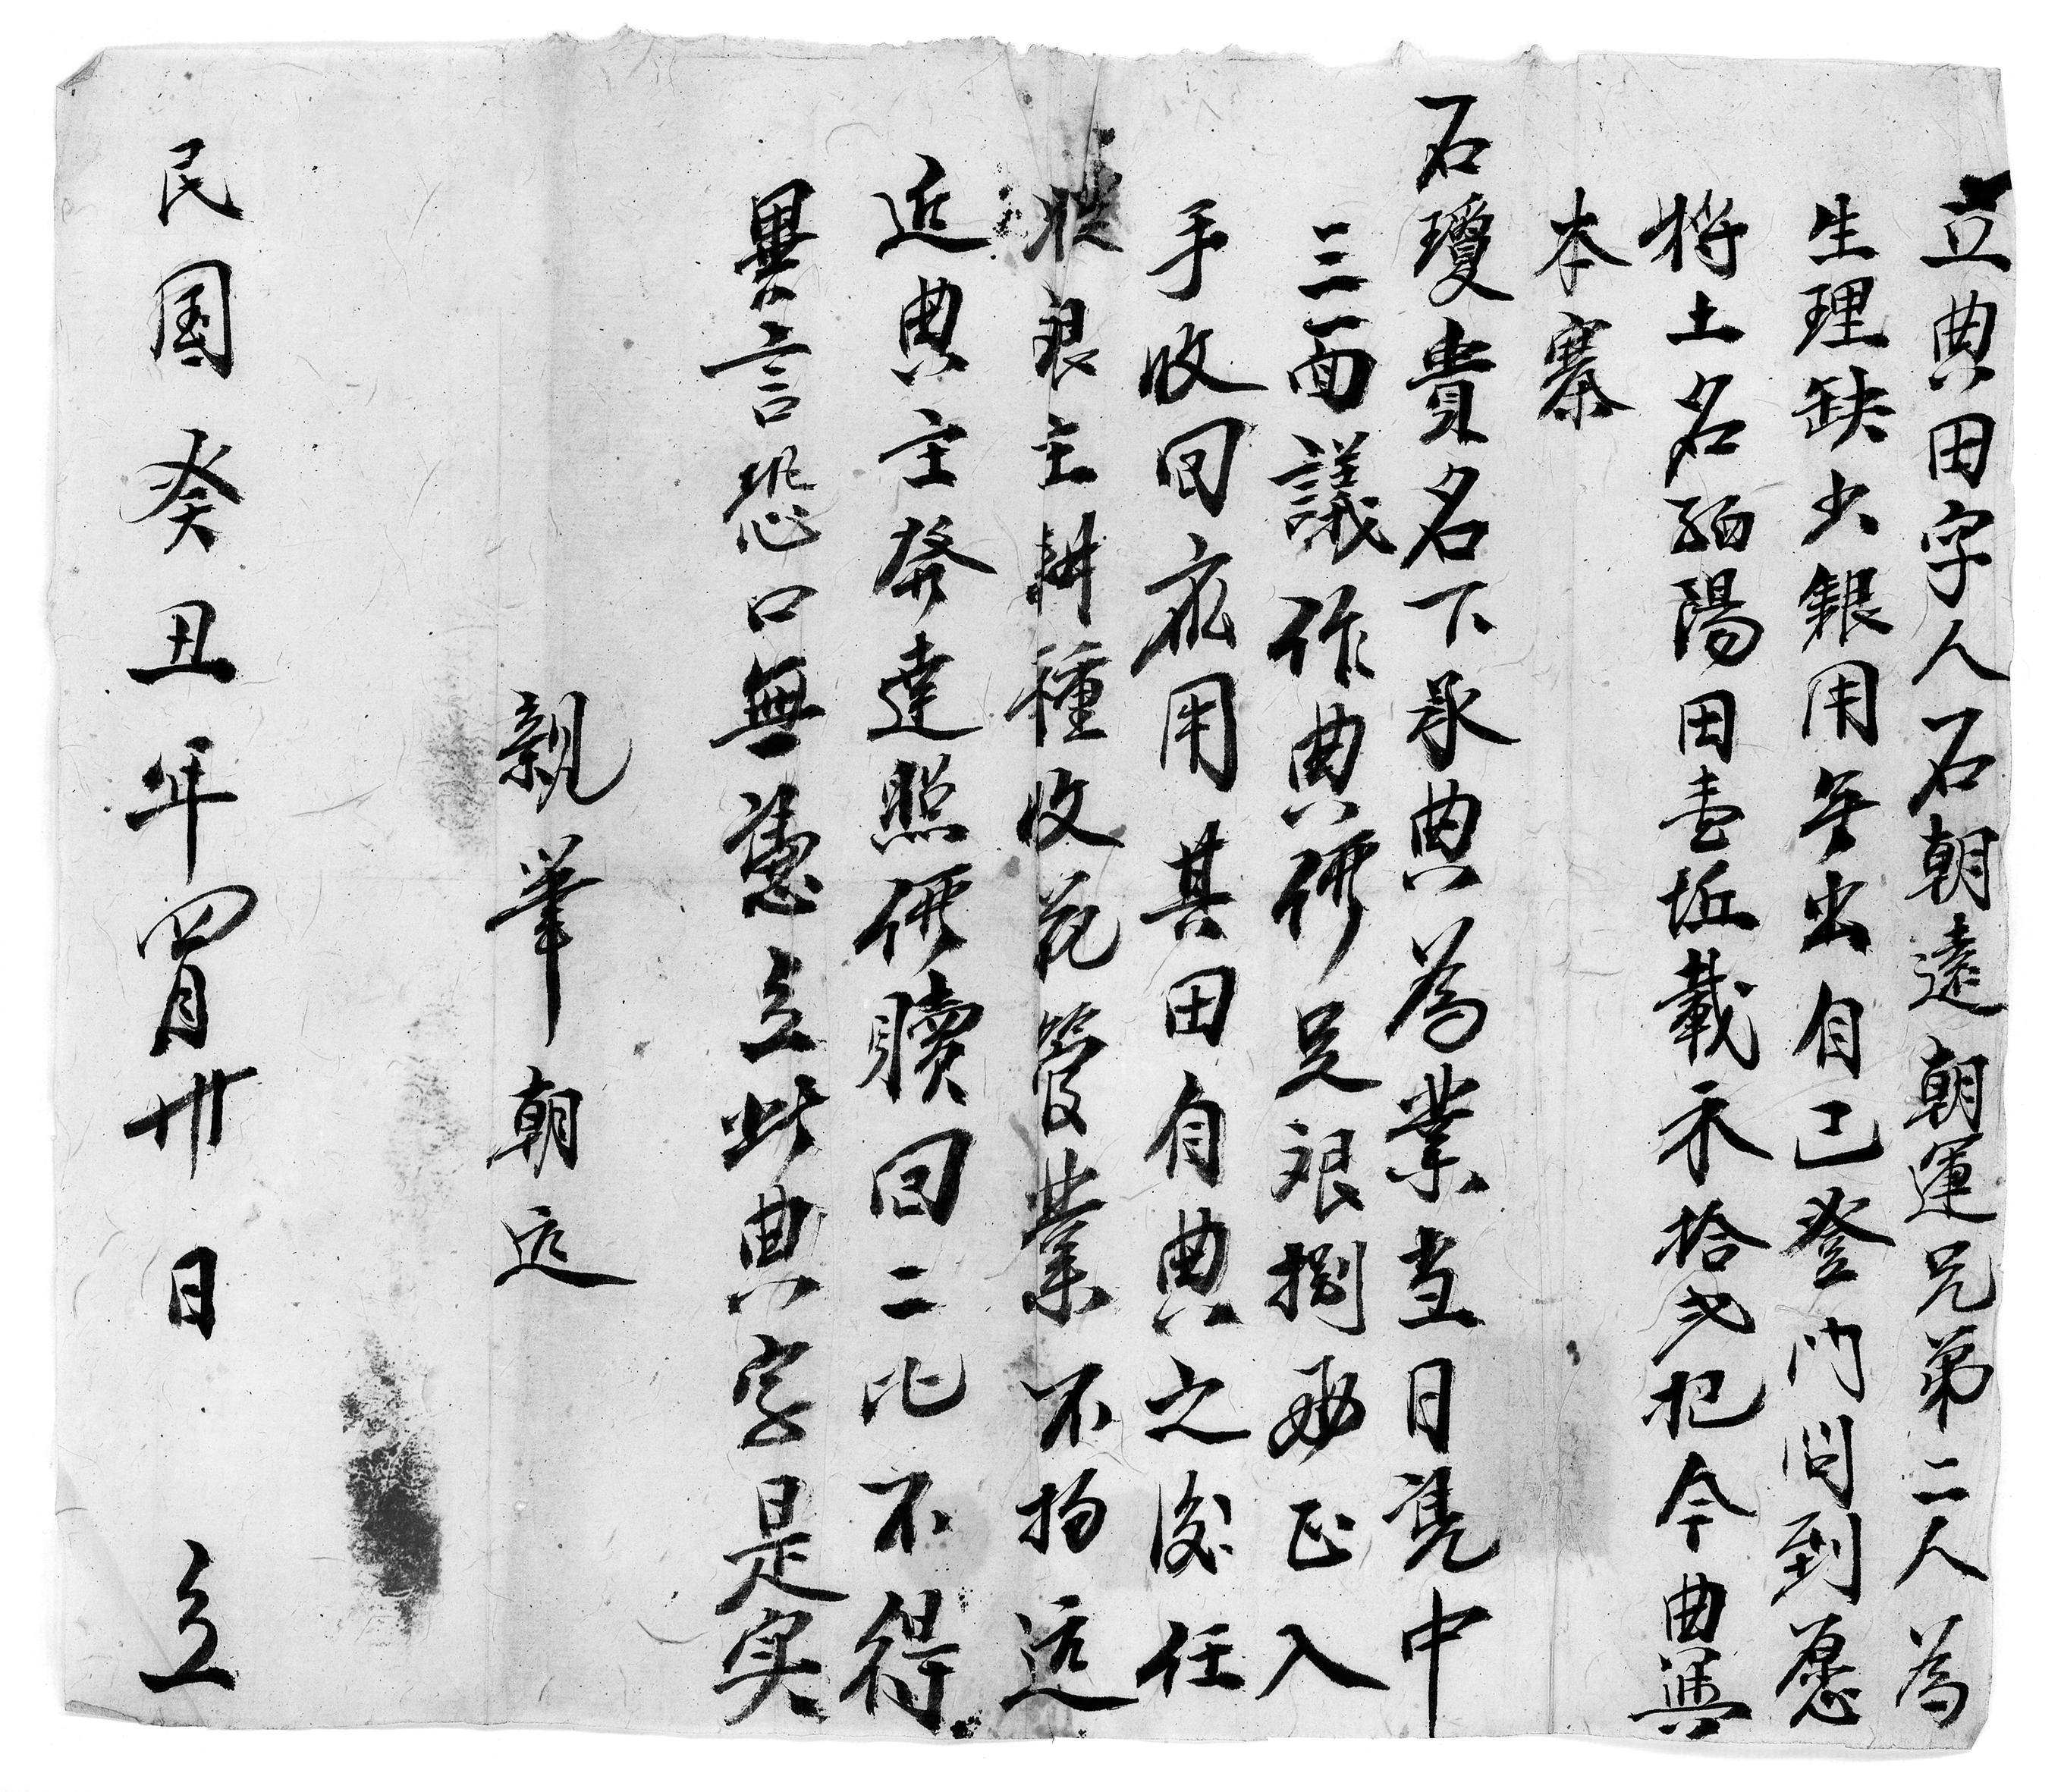 立典田字人石朝遠朝運兄弟二人為
生理缺少銀用無出自己登门问到愿
將土名䋚陽田壹坵載禾拾弍把今典與
本寨
石瓊貴名下承典為業当日凴中
三面議作典價足艮捌両正入
手收回應用其田自典之後任
從艮主耕種收花管業不拘远
近典主發達照價贖回二比不得
異言恐口無憑立此典字是实
親筆朝远
民国癸丑年四月卅日立